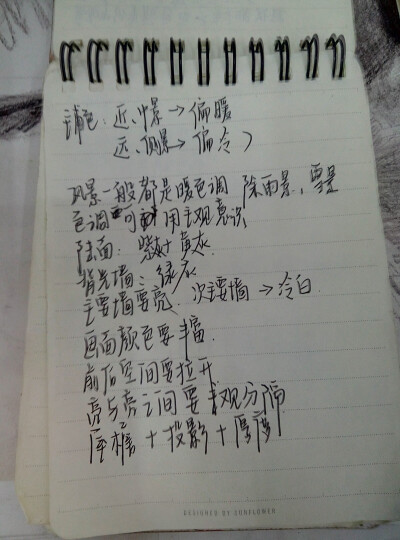 铺色：近、暖→偏暖
远、侧景→偏冷
风景一般都是暖色调 除雨景、雪景
色调可用主观意识
陆面：紫灰+黄灰
背光墙：绿灰
主要墙要亮、次要墙→冷白
画面颜色要丰富
前后空间要拉开
亮与亮之间要主观分隔
屋檐+投影+厚度
DESIGNED BY SUNFLOWER